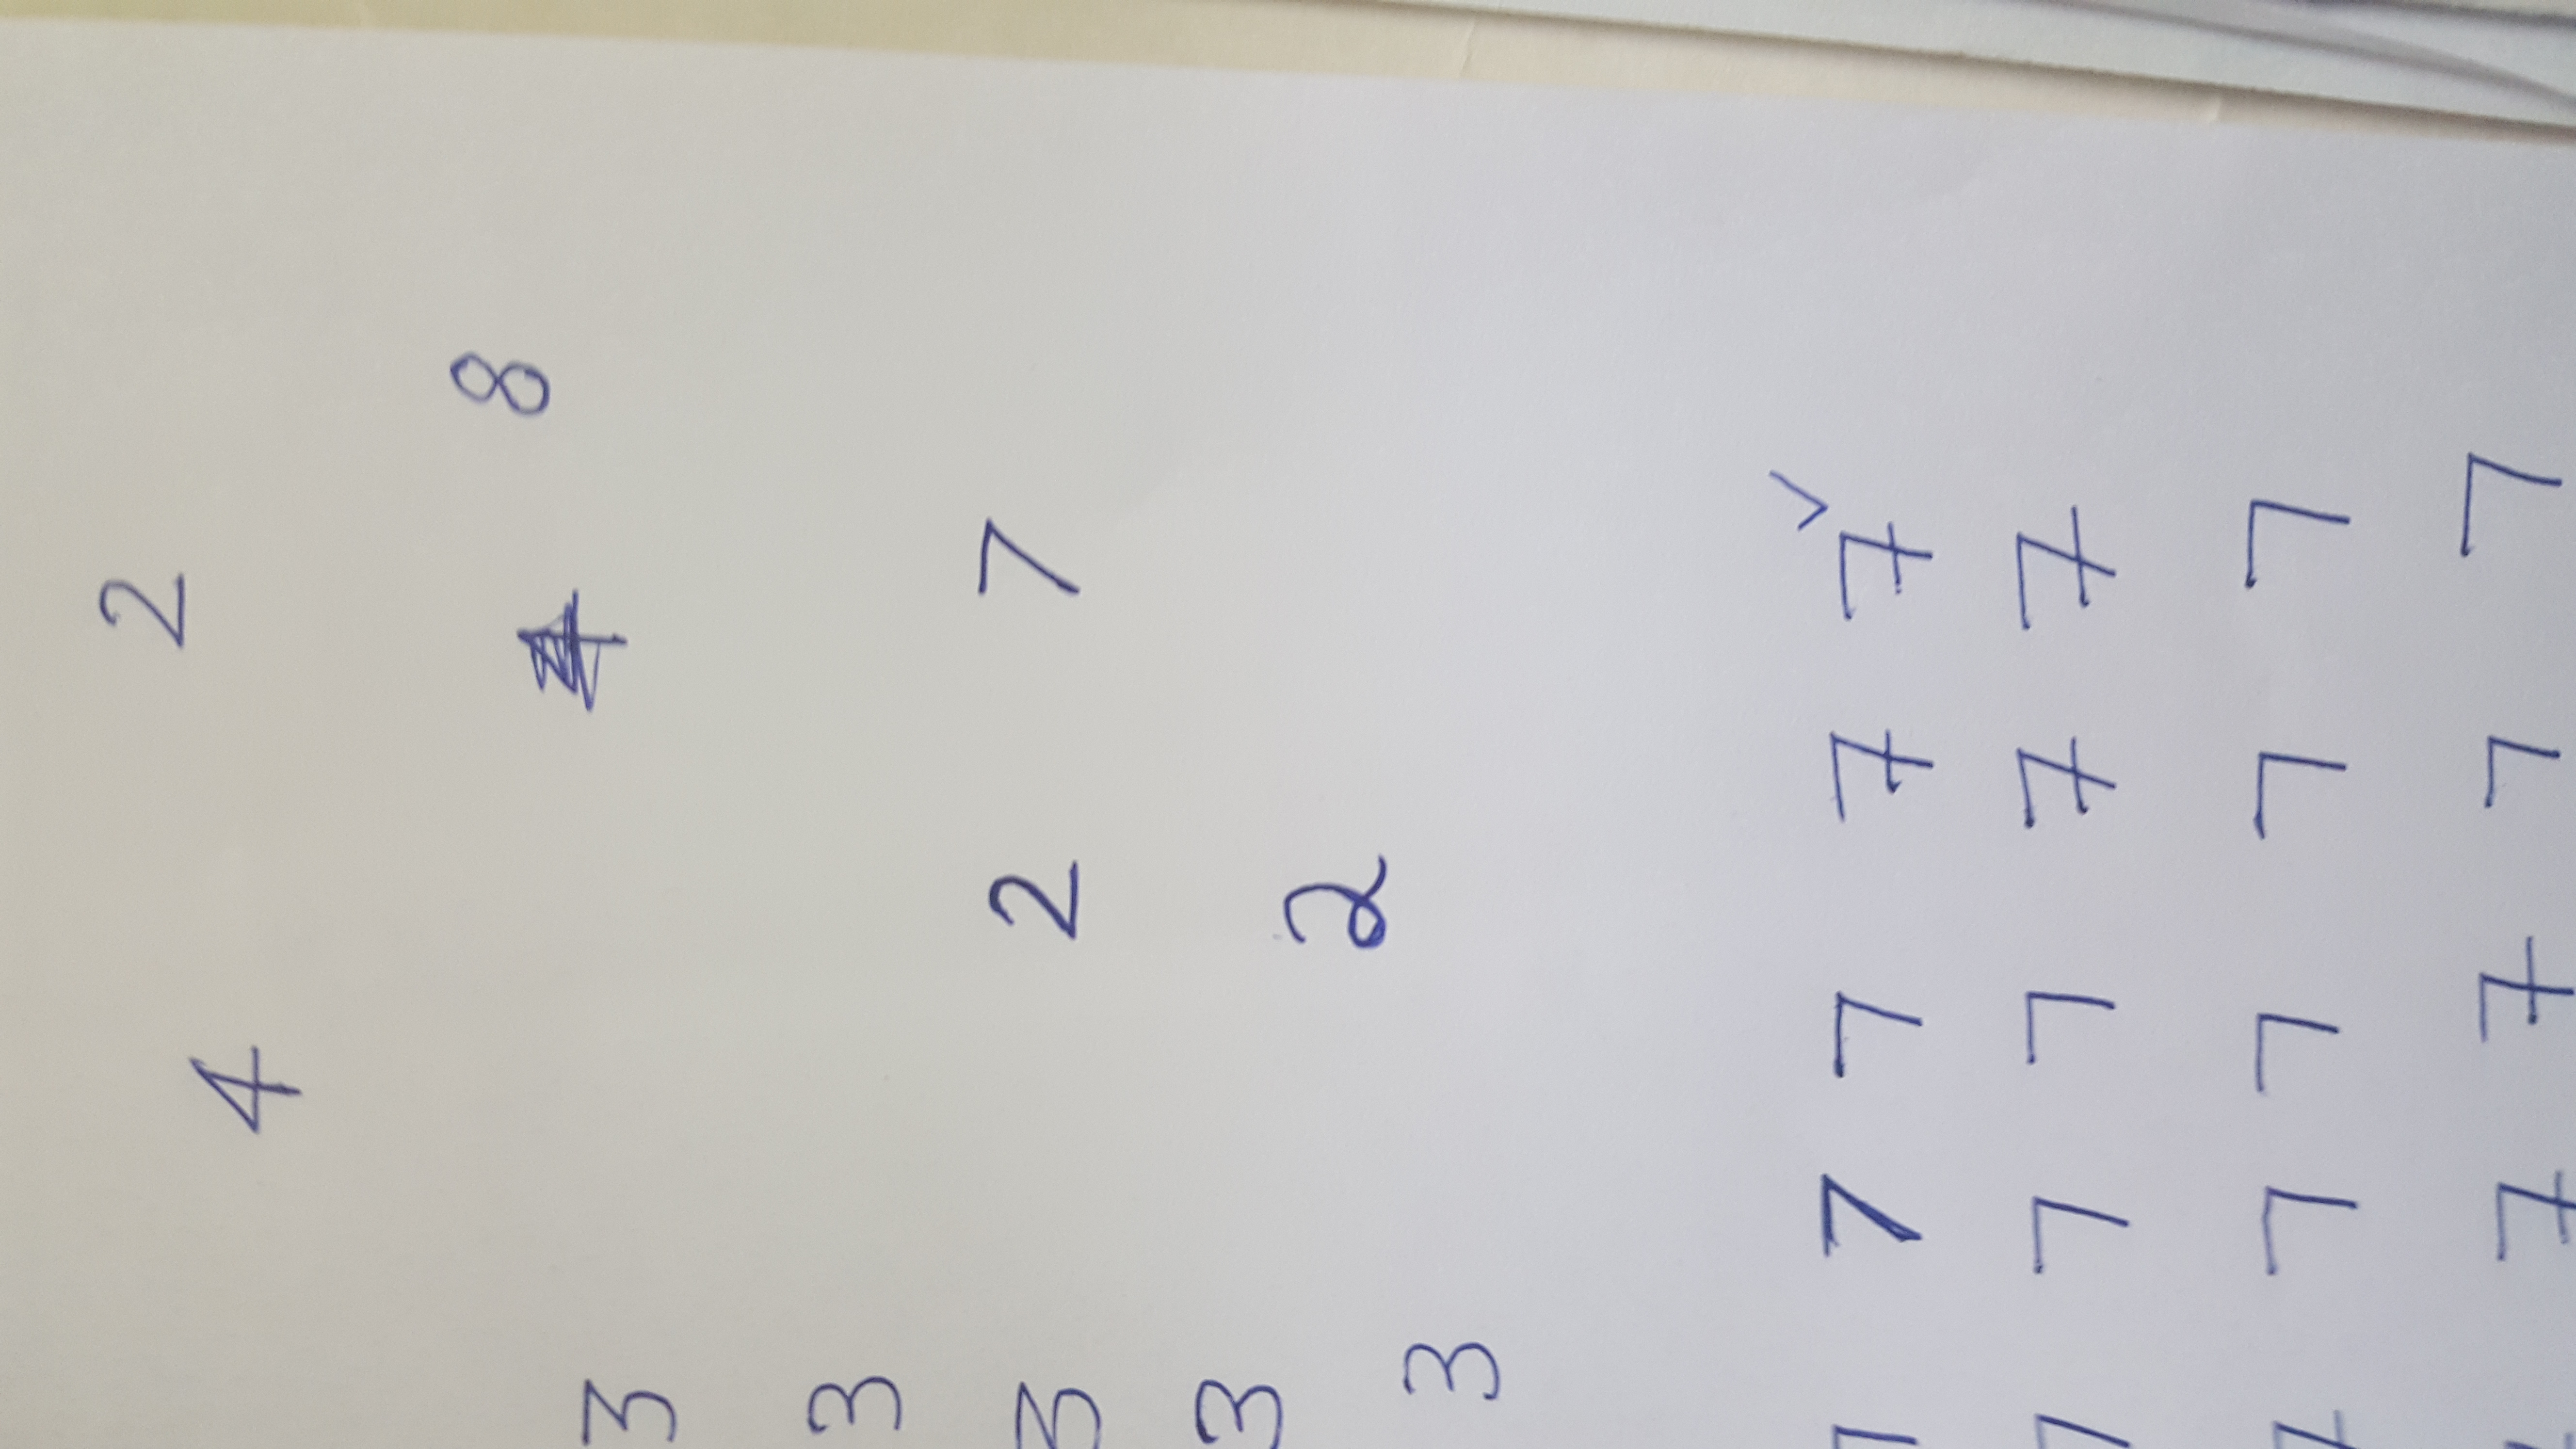 2
4
8
3
3
2 7
3
3
2
3
7 7 7 7 7 ✓
7 7 7 7 7
7 7 7 7 7
7 7 7 7